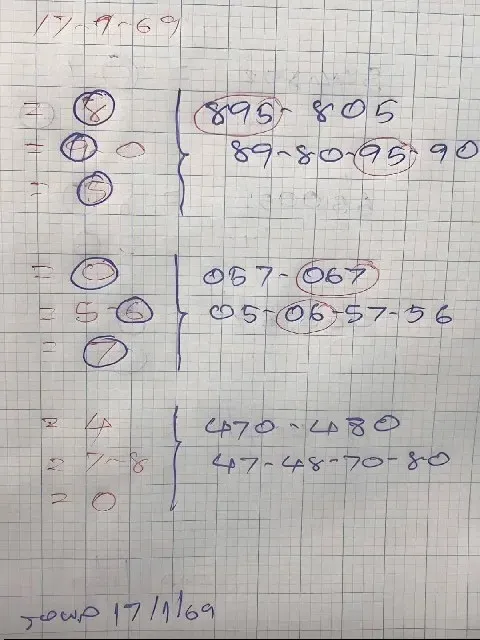 17-9-69
= 8 895- 805
= 9 0 89-80-95-90
= 5
= 0 057-067
= 5-6 05-06-57-56
= 7
= 4 470-480
= 7-8 47-48-70-80
= 0
17/1/69